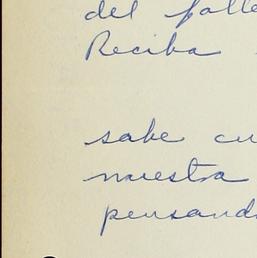 del falle
Reciba
sabe cu
nuestra
pensand